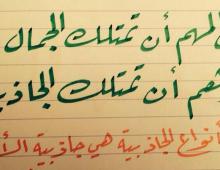 المهم أن تمتلك الجمال
أن تمتلك الجاذبية
أنواع الجاذبية هي جاذبية